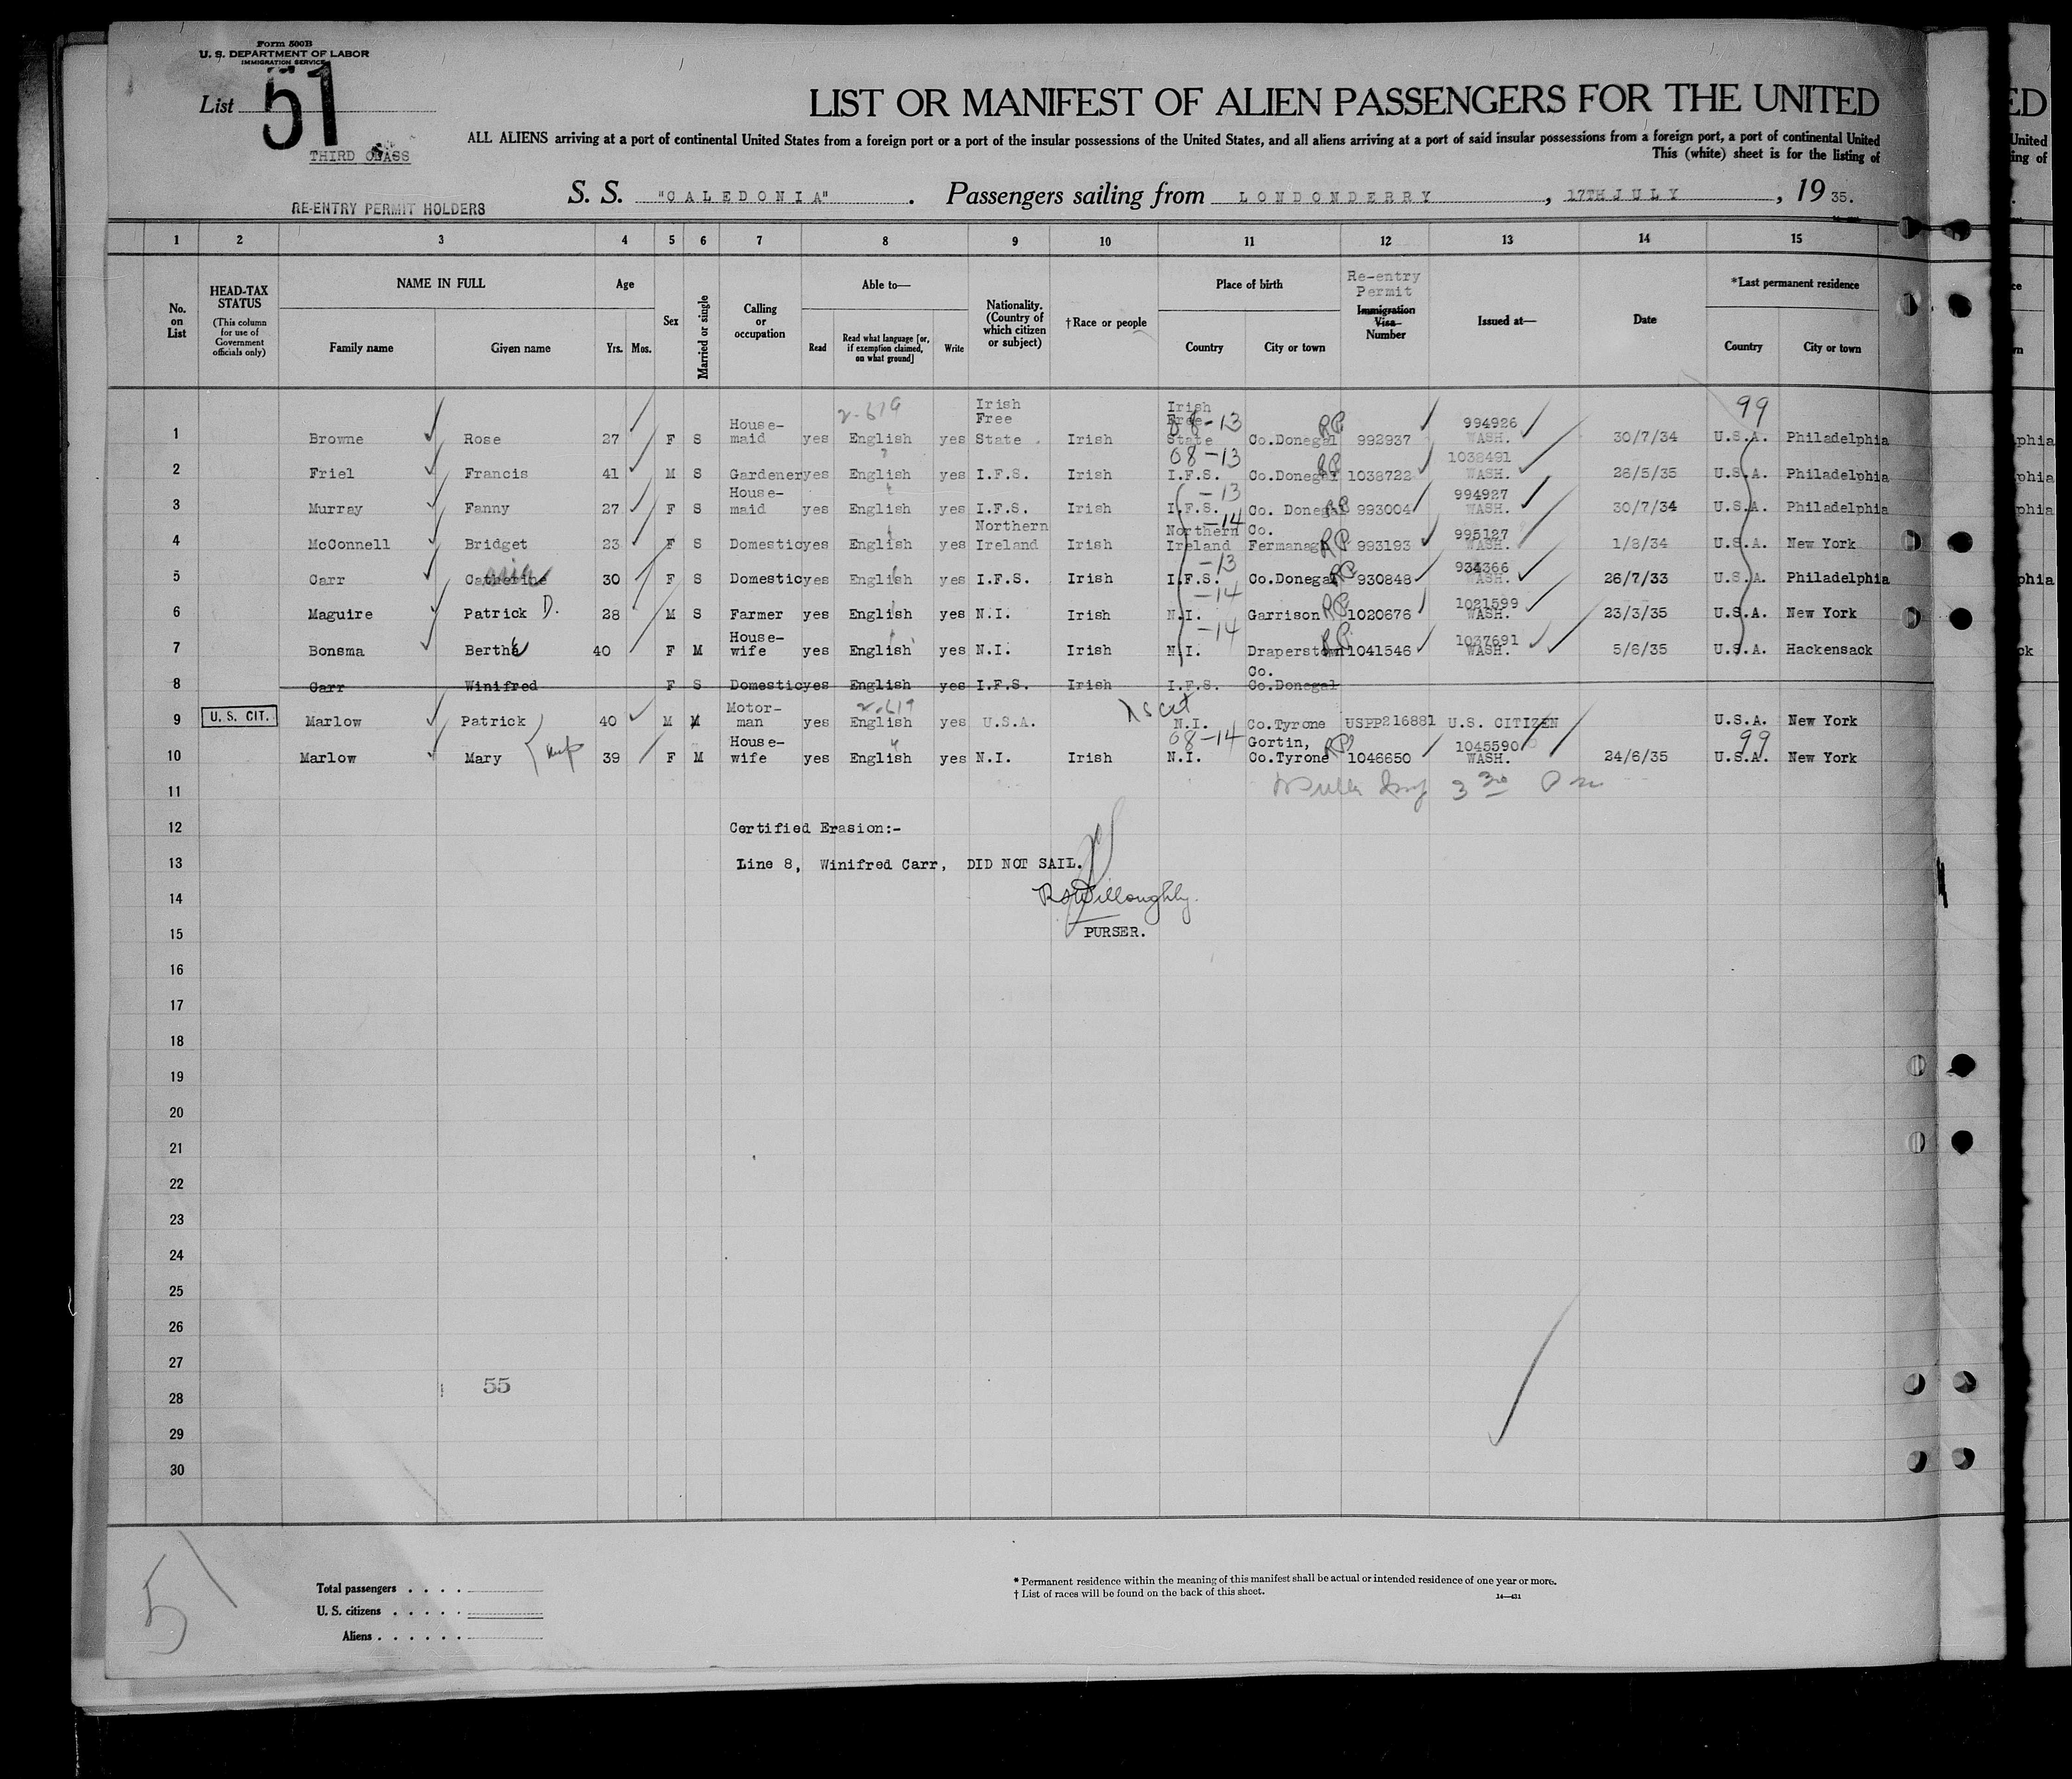 Form 500B
U. S. DEPARTMENT OF LABOR
IMMIGRATION SERVICE
List 51
THIRD CLASS
LIST OR MANIFEST OF ALIEN PASSENGERS FOR THE UNITED
ALL ALIENS arriving at a port of continental United States from a foreign port or a port of the insular possessions of the United States, and all aliens arriving at a port of said insular possessions from a foreign port, a port of continental United
This (white) sheet is for the listing of
RE-ENTRY PERMIT HOLDERS
S. S. "CALEDONIA" . Passengers sailing from LONDONDERRY , 17TH JULY , 19 35.
1 2 3 4 5 6 7 8 9 10 11 12 13 14 15
No. on List
HEAD-TAX STATUS (This column for use of Government officials only)
NAME IN FULL
Family name Given name
Age
Yrs. Mos.
Sex
Married or single
Calling or occupation
Able to—
Read Read what language [or, if exemption claimed, on what ground] Write
Nationality. (Country of which citizen or subject)
†Race or people
Place of birth
Country City or town
Re-entry Permit
Immigration Visa Number
Issued at—
Date
*Last permanent residence
Country City or town
1 Browne Rose 27 F S House-maid yes English 2-619 yes Irish Free State Irish Irish Free State 68-13 Co.Donegal RP 992937 994926 WASH. 30/7/34 99 U.S.A. Philadelphia
2 Friel Francis 41 M S Gardener yes English yes I.F.S. Irish 68-13 I.F.S. Co.Donegal RP 1038722 1038491 WASH. 28/5/35 U.S.A. Philadelphia
3 Murray Fanny 27 F S House-maid yes English yes I.F.S. Irish -13 I.F.S. Co. Donegal RP 993004 994927 WASH. 30/7/34 U.S.A. Philadelphia
4 McConnell Bridget 23 F S Domestic yes English yes Northern Ireland Irish -14 Northern Ireland Co. Fermanagh RP 993193 995127 WASH. 1/8/34 U.S.A. New York
5 Carr Catherine 30 F S Domestic yes English yes I.F.S. Irish -13 I.F.S. Co.Donegal RP 930848 934366 WASH. 26/7/33 U.S.A. Philadelphia
6 Maguire Patrick D. 28 M S Farmer yes English yes N.I. Irish -14 N.I. Garrison RP 1020676 1021599 WASH. 23/3/35 U.S.A. New York
7 Bonsma Bertha 40 F M House-wife yes English yes N.I. Irish -14 N.I. Draperstown RP 1041546 1037691 WASH. 5/6/35 U.S.A. Hackensack
8 Carr Winifred F S Domestic yes English yes I.F.S. Irish I.F.S. Co. Co.Donegal
9 U. S. CIT. Marlow Patrick 40 M M Motor-man yes English 2-619 yes U.S.A. N.I. Co.Tyrone USPP216881 U.S. CITIZEN U.S.A. New York
10 Marlow Mary 39 F M House-wife yes English yes N.I. Irish 68-14 N.I. Gortin, Co.Tyrone RP 1046650 1045590 WASH. 24/6/35 99 U.S.A. New York
11
12 Certified Erasion:-
13 Line 8, Winifred Carr, DID NOT SAIL.
14 Willoughby.
15 PURSER.
16
17
18
19
20
21
22
23
24
25
26
27
55
28
29
30
51
Total passengers . . . .
U. S. citizens . . . . .
Aliens . . . . . .
* Permanent residence within the meaning of this manifest shall be actual or intended residence of one year or more.
† List of races will be found on the back of this sheet.
14—431